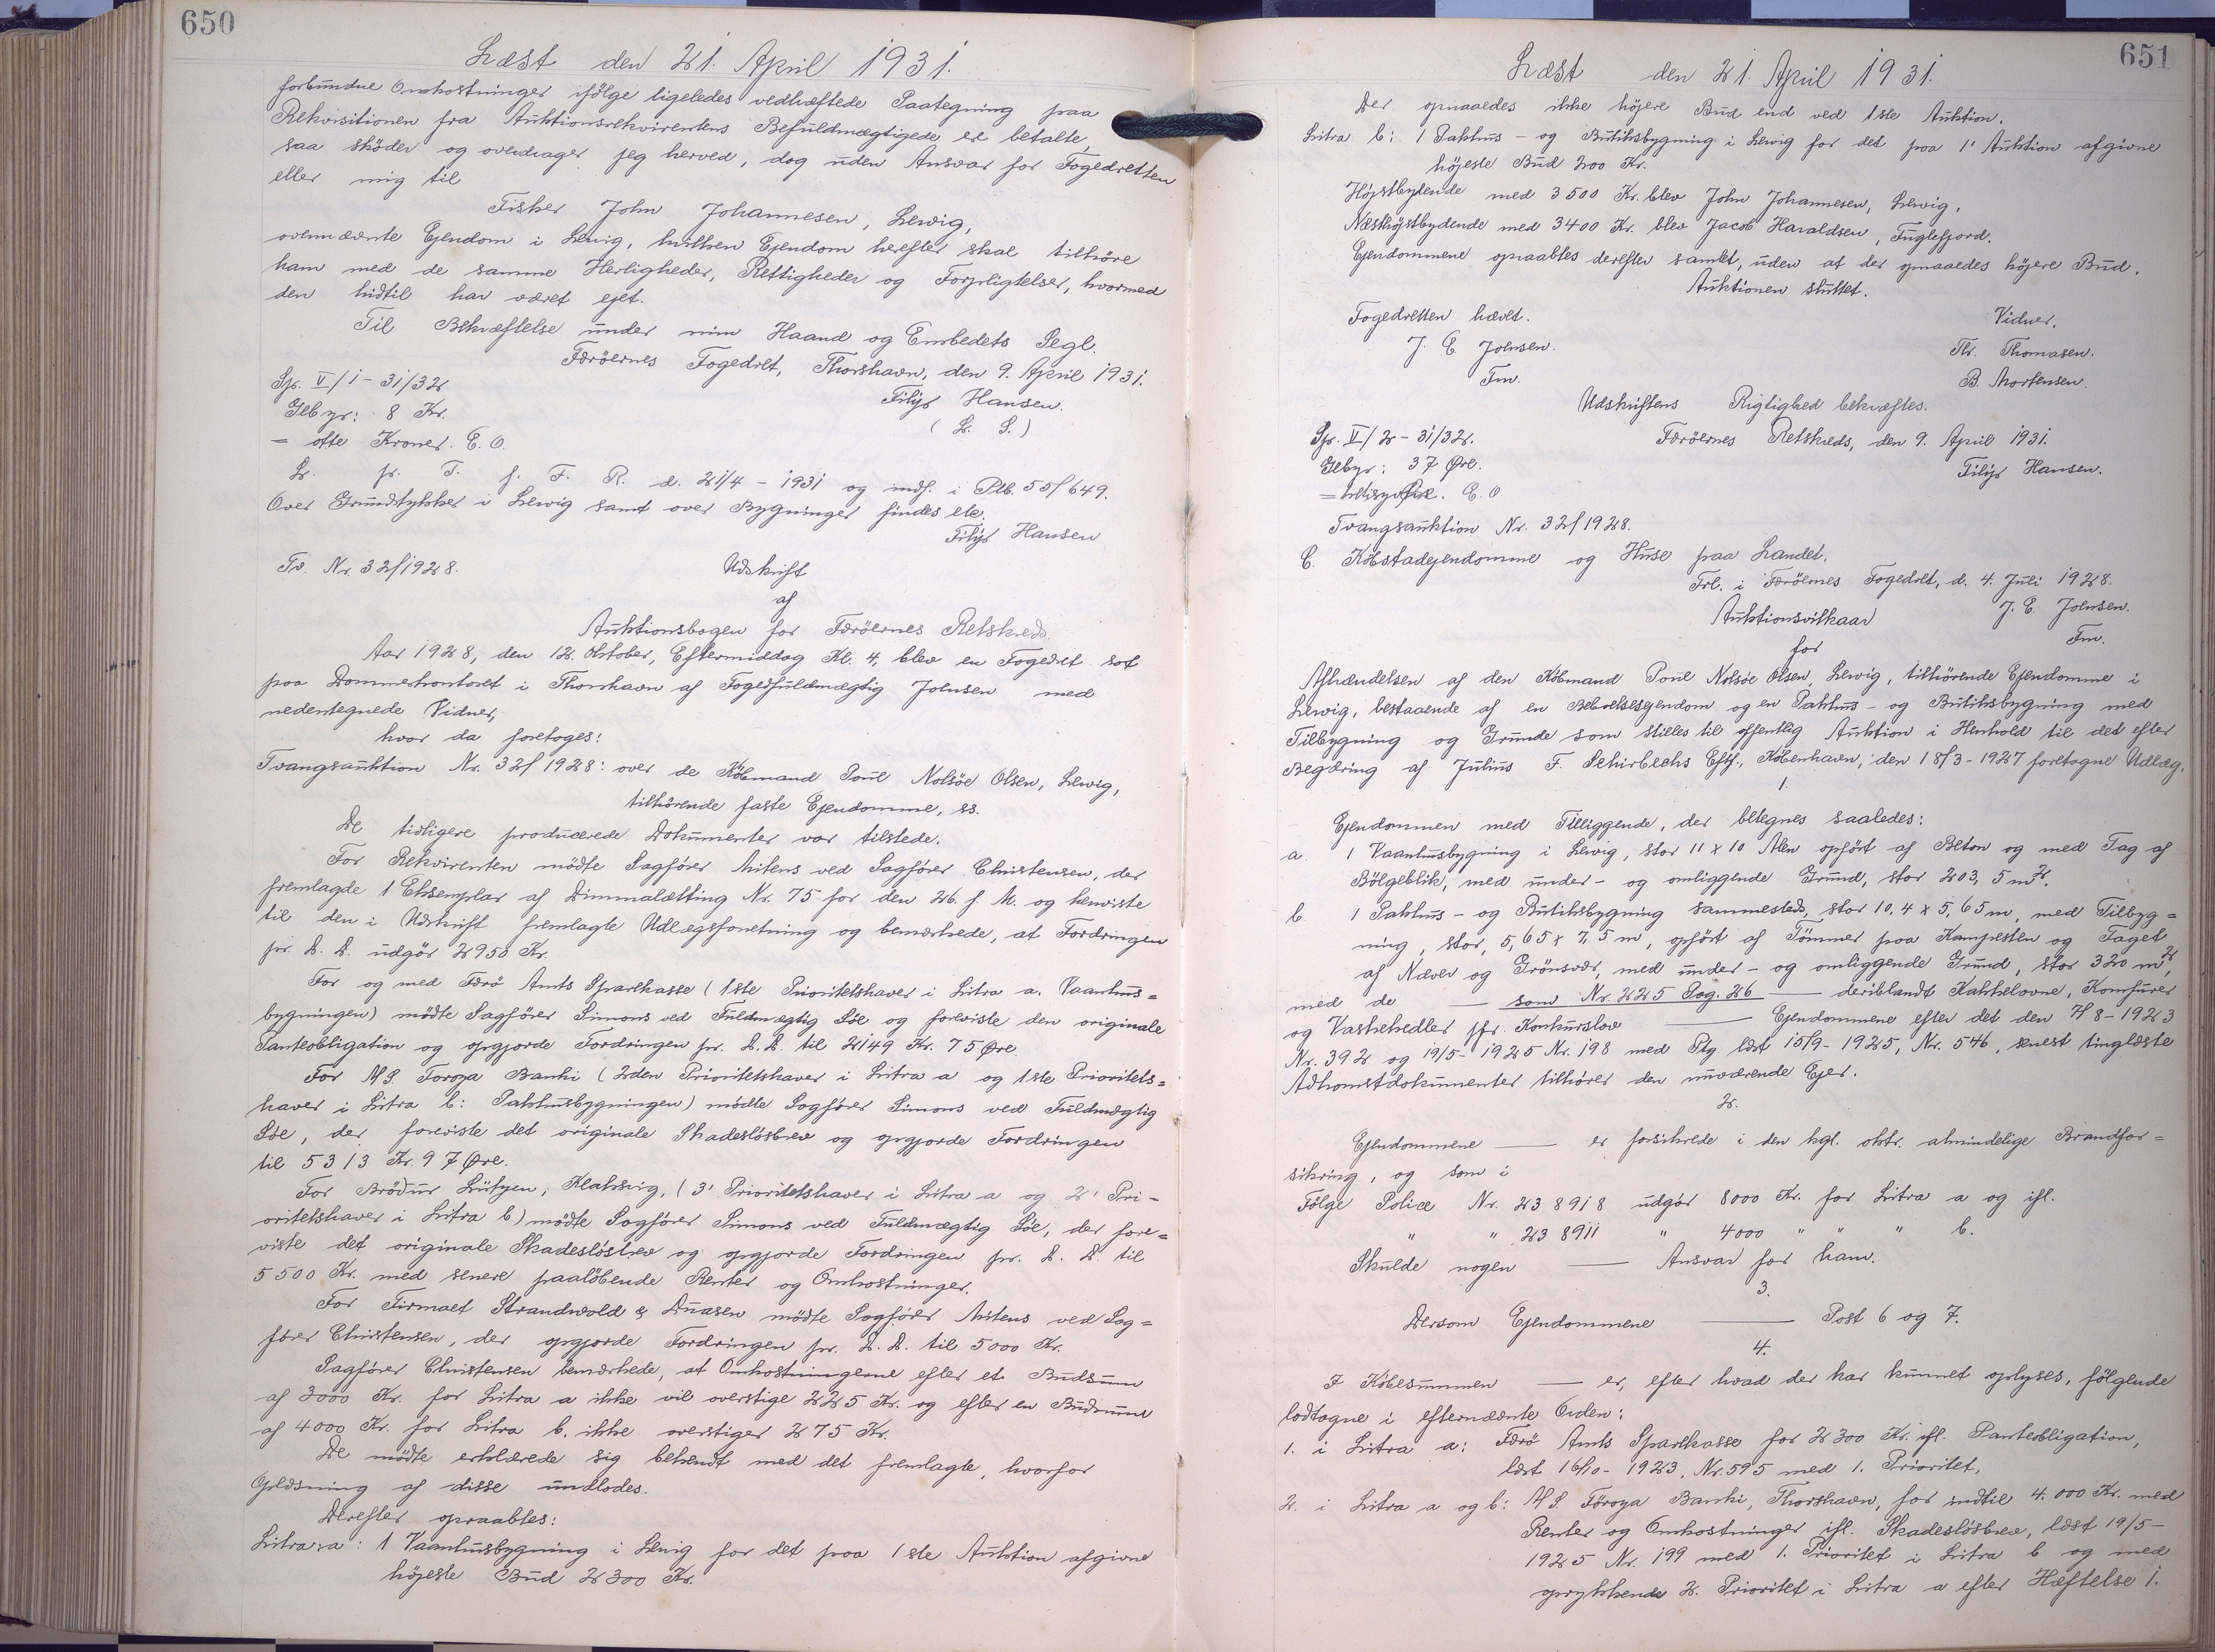 650
Læst den 21. April 1931.
forbundne Omkostninger ifölge ligeledes vedhæftede Paategning paa
Rekvisitionen fra Auktionsrekvirentens Befuldmægtigede er betalte,
saa skøder og overdrager jeg herved, dog uden Ansvar for Fogedretten
eller mig til
Fisker John Johannesen, Lervig,
ovennævnte Ejendom i Lervig, hvilken Ejendom herefter skal tilhöre
ham med de samme Herligheder, Rettigheder og Forpligtelser, hvormed
den hidtil har været ejet.
Til Bekræftelse under min Haand og Embedets Segl.
Færöernes Fogedret, Thorshavn, den 9. April 1931.
Spr. V/1 - 31/32
Filip Hansen.
Gebyr: 8 Kr.
(L. S.)
= otte Kroner. E. O.
L. fr. T. f. F. R. d. 21/4 - 1931 og indf. i Ptb. 55/649.
Over Grundstykker i Lervig samt over Bygninger findes etc.
Filip Hansen
Tv. Nr. 32/1928.
Udskrift
af
Auktionsbogen for Færöernes Retskreds.
Aar 1928, den 12. Oktober, Eftermiddag Kl. 4, blev en Fogedret sat
paa Dommerkontoret i Thorshavn af Fogedfuldmægtig Joensen med
nedentegnede Vidner,
hvor da foretoges:
Tvangsauktion Nr. 32/1928: over de Købmand Poul Nolsöe Olsen, Lervig,
tilhörende faste Ejendomme, ss.
De tidligere producerede Dokumenter var tilstede.
For Rekvirenten mödte Sagfører Mitens ved Sagfører Christensen, der
fremlagde 1 Eksemplar af Dimmalætting Nr. 75 for den 26. f. M. og henviste
til den i Udskrift fremlagte Udlægsforretning og bemærkede, at Fordringen
pr. D. D. udgör 2950 Kr.
For og med Færö Amts Sparekasse (1ste Prioritetshaver i Litra a. Vaanhus=
bygningen) mødte Sagfører Simons ved Fuldmægtig Söe og foreviste den originale
Panteobligation og opgjorde Fordringen pr. D. D. til 2149 Kr. 75 Øre.
For A/S. Foroya Banki (2den Prioritetshaver i Litra a og 1ste Prioritets=
haver i Litra b: Pakhusbygningen) mödte Sagfører Simons ved Fuldmægtig
Söe, der foreviste det originale Skadeslösbrev og opgjorde Fordringen
til 5313 Kr. 97 Øre.
For Brödur Lützen, Klaksvig, (3' Prioritetshaver i Litra a og 2' Pri-
oritetshaver i Litra b) mödte Sagfører Simons ved Fuldmægtig Söe, der fore=
viste det originale Skadeslösbrev og opgjorde Fordringen pr. D. D. til
5500 Kr. med senere paalöbende Renter og Omkostninger.
For Firmaet Strandvold & Duasen mödte Sagfører Mitens ved Sag=
fører Christensen, der opgjorde Fordringen pr. D. D. til 5000 Kr.
Sagfører Christensen bemærkede, at Omkostningerne efter et Budsum
af 3000 Kr. for Litra a ikke vil overstige 225 Kr. og efter en Budsum
af 4000 Kr. for Litra b. ikke overstiger 275 Kr.
De mödte erklærede sig bekendt med det fremlagte, hvorfor
Oplæsning af disse undlodes.
Derefter opraabtes:
Litra: a: 1 Vaanhusbygning i Lervig for det paa 1ste Auktion afgivne
højeste Bud 2300 Kr.
651
Læst den 21. April 1931.
Der opnaaedes ikke højere Bud end ved 1ste Auktion.
Litra b: 1 Pakhus - og Butiksbygning i Lervig for det paa 1' Auktion afgivne
højeste Bud 200 Kr.
Højstbydende med 3500 Kr. blev John Johannesen, Lervig,
Næsthøjstbydende med 3400 Kr. blev Jacob Haraldsen, Fuglefjord.
Ejendommene opraabtes derefter samlet, uden at der opnaaedes højere Bud.
Auktionen sluttet.
Fogedretten hævet.
Vidner,
J. E. Joensen.
Thr. Thomasen.
Fm.
B. Mortensen.
Udskriftens Rigtighed bekræftes.
Spr. V/2 - 31/32.
Færöernes Retskreds, den 9. April 1931.
Gebyr: 37 Øre.
Filip Hansen.
= Øre. E. O
Tvangsauktion Nr. 32/1928.
C. Købstadejendomme og Huse paa Landet.
Frl. i Færöernes Fogedret, d. 4. Juli 1928.
Auktionsvilkaar
J. E. Joensen.
for
Fm.
Afhændelsen af den Købmand Poul Nolsöe Olsen, Lervig, tilhørende Ejendomme i
Lervig, bestaaende af en Beboelsesejendom og en Pakhus - og Butiksbygning med
Tilbygning og Grunde som stilles til offentlig Auktion i Henhold til det efter
Begæring af Julius F. Schirbecks Eftf., København, den 18/3 - 1927 foretagne Udlæg.
1.
Ejendommen med Tilliggende, der betegnes saaledes:
a. 1 Vaanhusbygning i Lervig, stor 11 x 10 Alen opført af Beton og med Tag af
Bölgeblik, med under - og omliggende Grund, stor 203, 5 m2.
b. 1 Pakhus - og Butiksbygning sammesteds, stor 10, 4 x 5, 65 m, med Tilbyg=
ning, stor, 5, 65 x 7, 5 m, opfört af Tömmer paa Kampesten og Taget
af Næver og Grönsvær, med under - og omliggende Grund, stor 320 m2,
med de — som Nr. 225 Pag. 26 — deriblandt Kakkelovne, Komfurer
og Vaskekedler jfr. Konkurslov — Ejendommene efter det den 7/8 - 1923
Nr. 392 og 19/5 - 1925 Nr. 198 med Ptg. læst 15/9 - 1925, Nr. 546, senest tinglæste
Adkomstdokumenter tilhører den nuværende Ejer.
2.
Ejendommene — er forsikrede i den kgl. oktr. almindelige Brandfor=
sikring, og som i
Fölge Police Nr. 238918 udgör 8000 Kr. for Litra a og ifl.
" " 238911 " 4000 " " " b.
Skulde nogen — Ansvar for ham.
3.
Dersom Ejendommene — Post 6 og 7.
4.
I Købesummen — er, efter hvad der har kunnet oplyses, fölgende
lodtagne i efternævnte Orden:
1. i Litra a: Færö Amts Sparekasse for 2300 Kr. ifl. Panteobligation,
læst 16/10 - 1923, Nr. 595 med 1. Prioritet,
2. i Litra a og b: A/S Föroya Banki, Thorshavn, for indtil 4.000 Kr. med
Renter og Omkostninger ifl. Skadeslösbrev, læst 19/5 -
1925 Nr. 199 med 1. Prioritet i Litra b og med
oprykkende 2. Prioritet i Litra a efter Hæftelse 1.